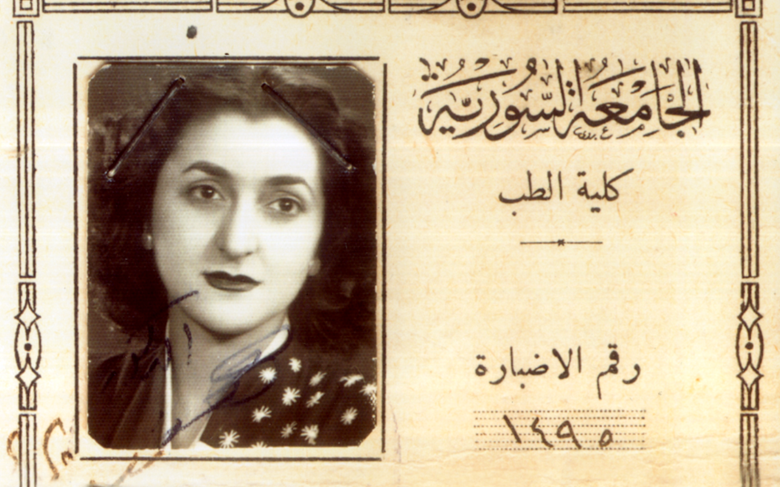 الجامعة السورية
كلية الطب
رقم الاضبارة
١٤٩٥